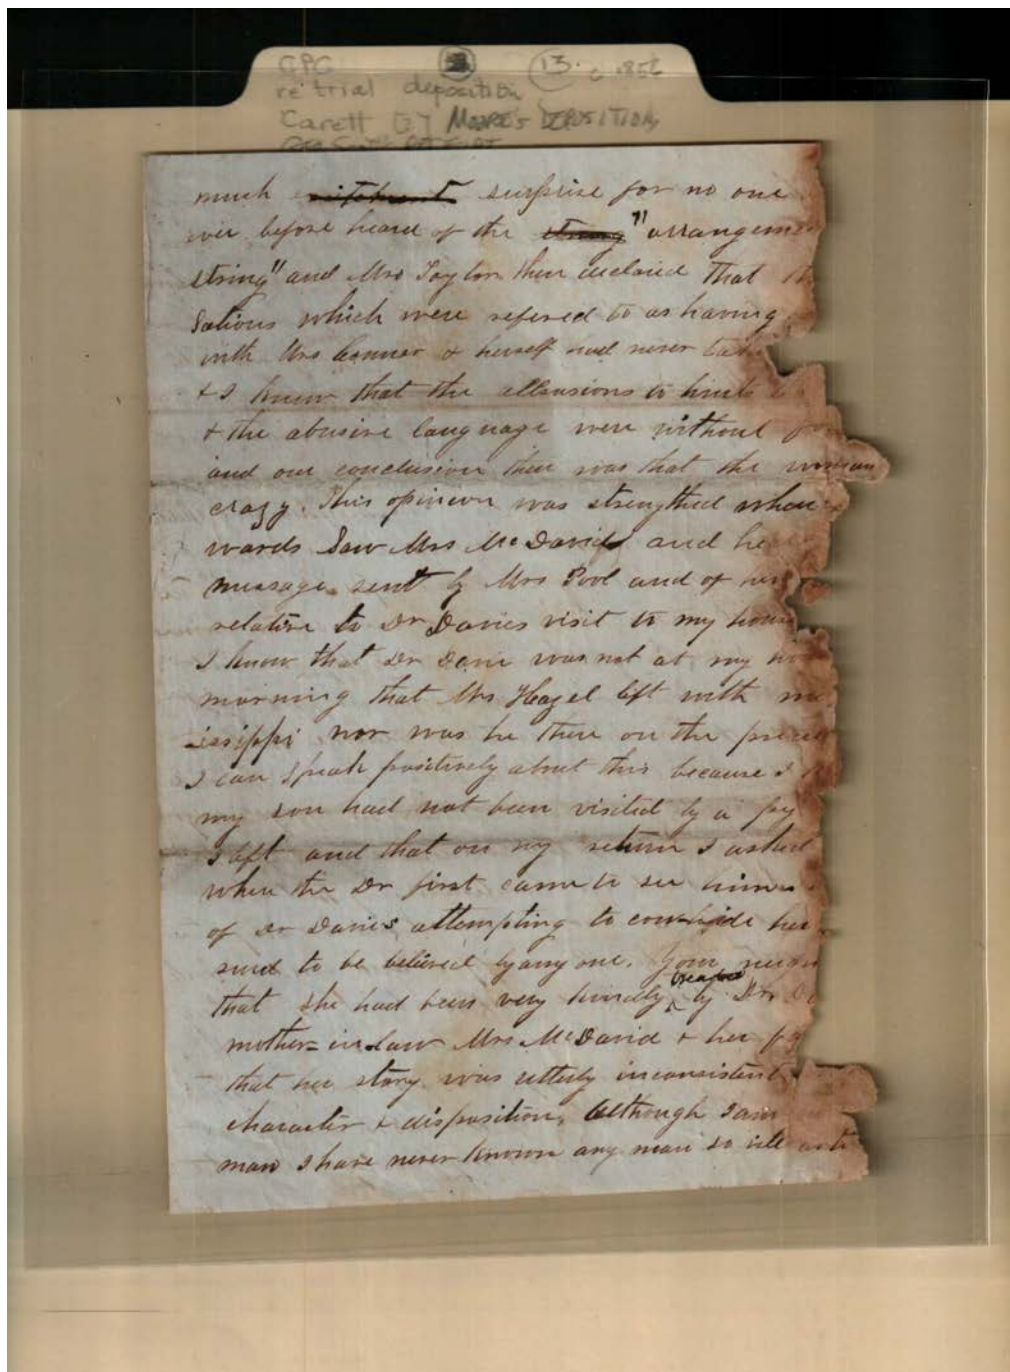 GPC 13. c 1852
re trial deposition
Carett MOORE'S DEPOSITION
much surprise for no one
ever before heard of the string "arrangeme
string" and Mrs Taylor then declared that th
sations which were refered to as having
with Mrs Conner & herself had never tak
& I knew that the allusions to hints
& the abusive language were without fo
and our conclusion then was that the woman
crazy. This opinion was strengthed when
wards Saw Mrs McDavid and he
message sent by Mrs Pool and of her
relative to Dr Davies visit to my hous
I know that Dr Davie was not at my ho
morning that Mrs Heazel left with m
issippi nor was he there on the preced
I can speak positively about this because I
my son had not been visited by a phy
I left and that on my return I asked
when the Dr first came to see him
of Dr Davies attempting to cowhide her
surd to be believed by any one.
that she had been very kindly treated by Dr D
mother-in-law Mrs McDavid & her
that her story was utterly inconsistent
character & disposition, Although I am
man I have never known any man so